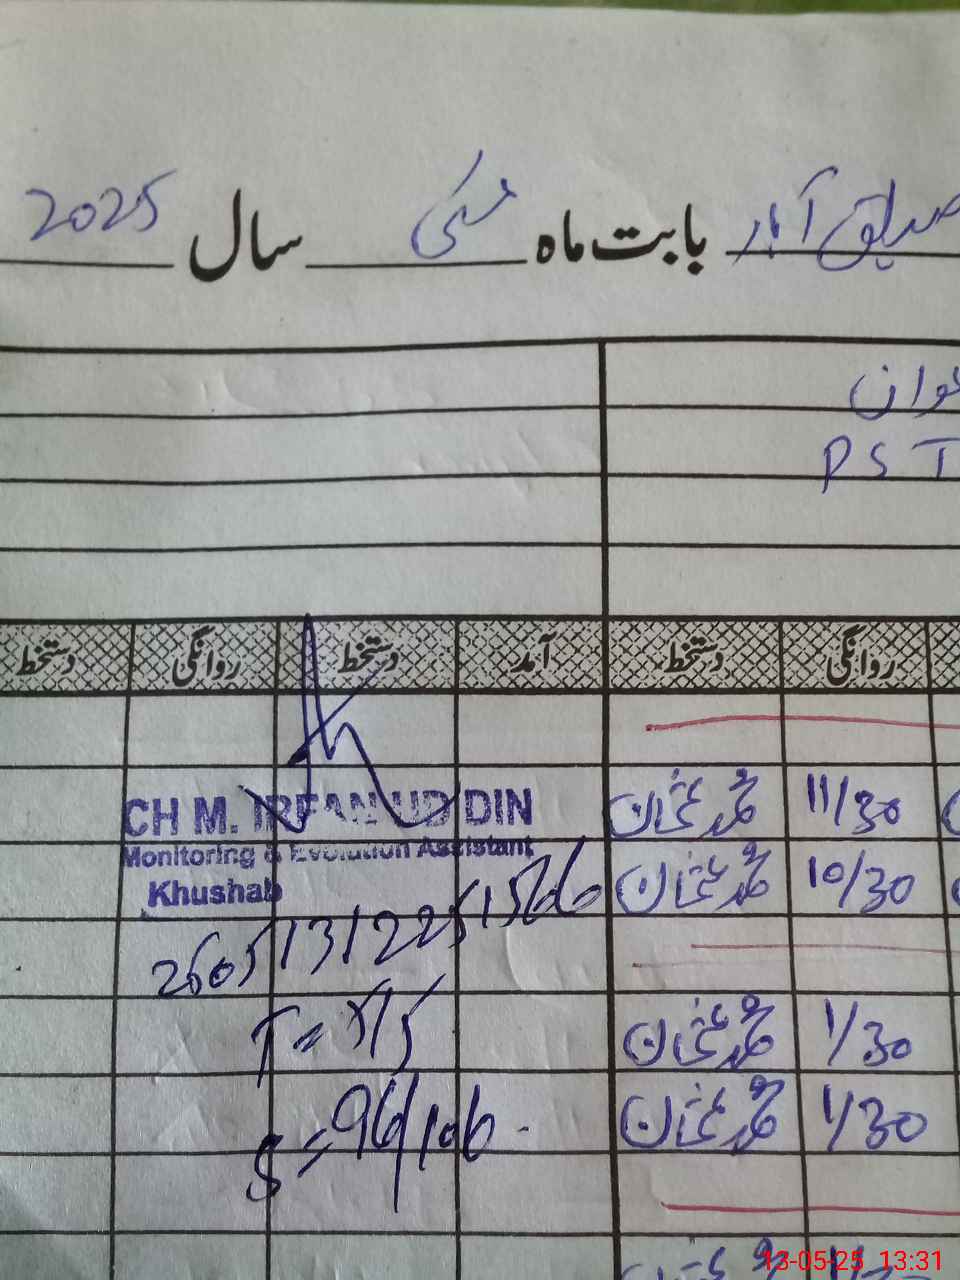 صدیق آباد بابت ماہ مئی سال 2025
PST
روانگی دستخط آمد دستخط روانگی دستخط
11/30 محمد عثمان
CH M. IRFAN UD DIN
Monitoring & Evolution Assistant
10/30 محمد عثمان
Khushab
1/30 محمد عثمان
1/30 محمد عثمان
S = 96/106
13-05-25 13:31